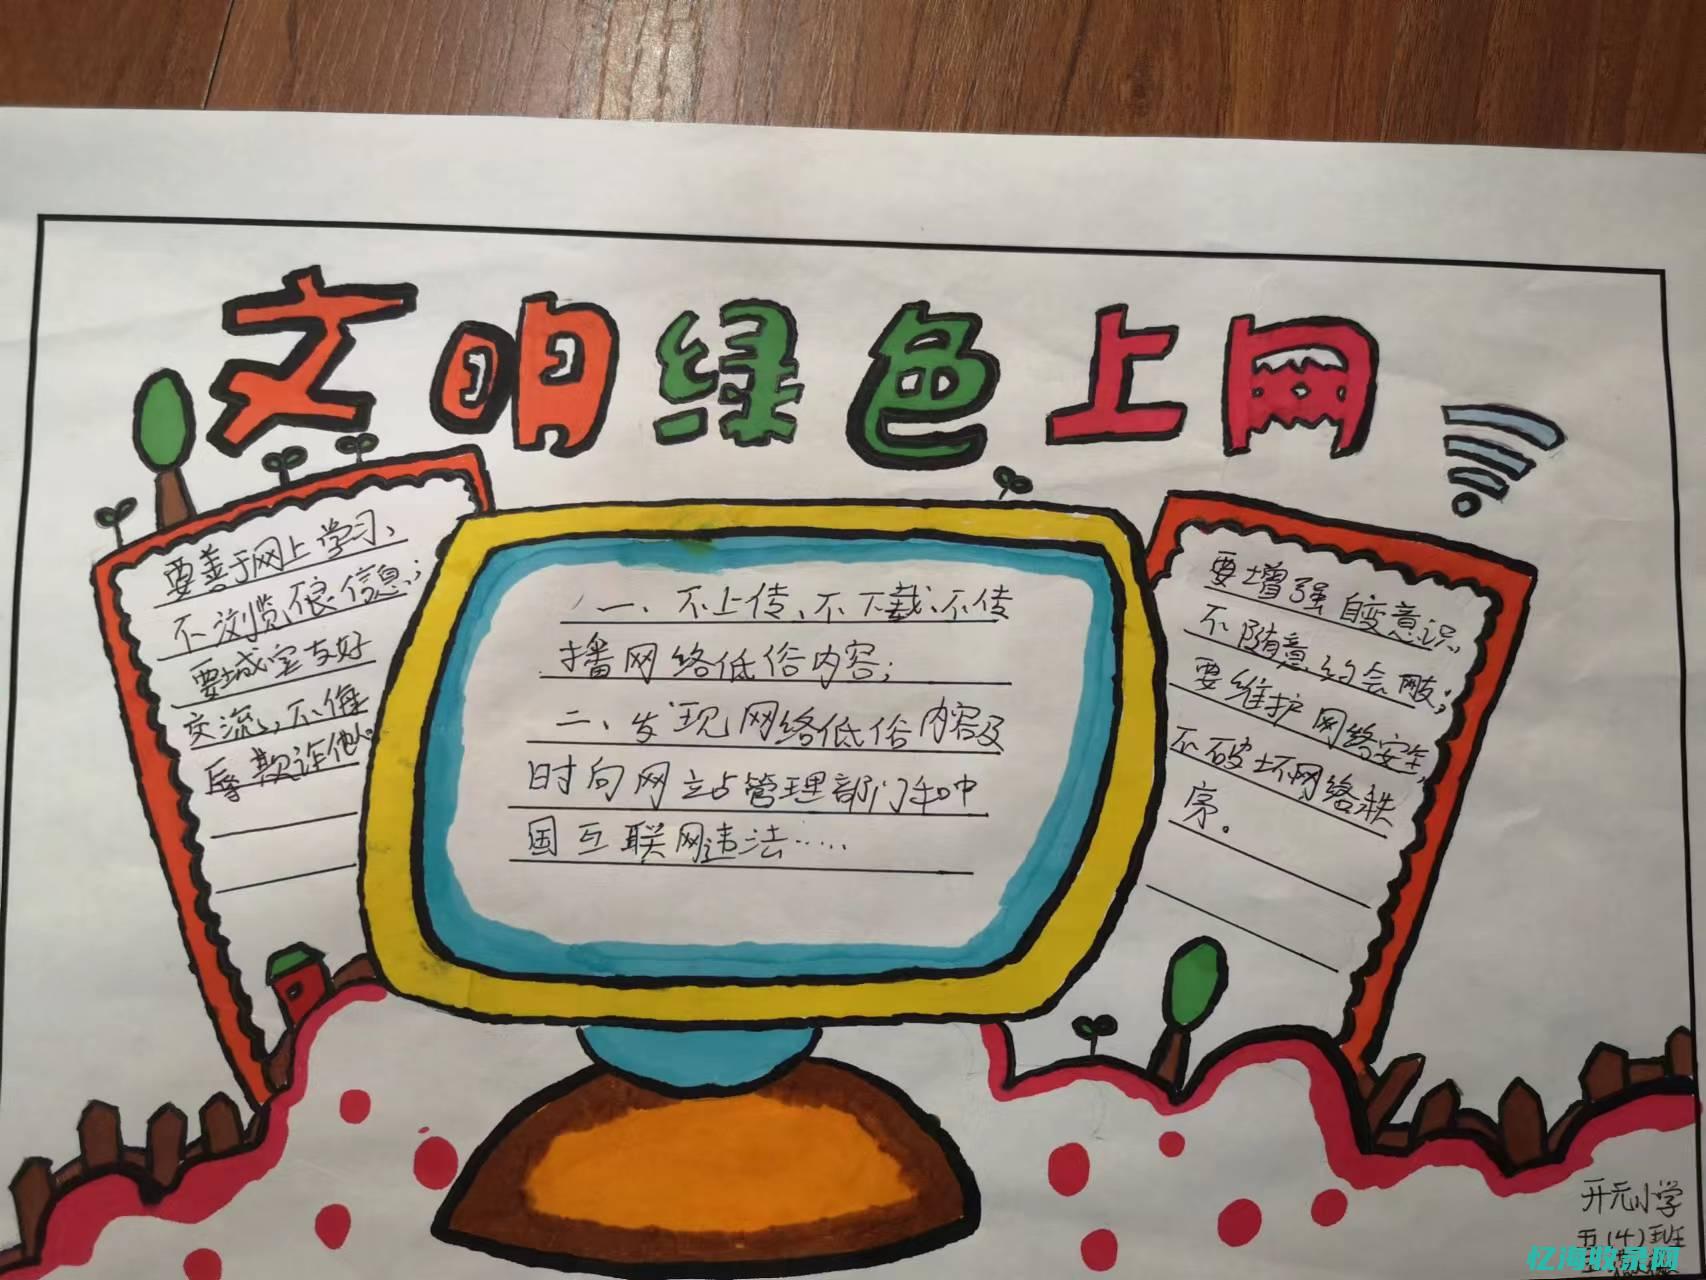 文明绿色上网
要善于网上学习、
不浏览不良信息;
要诚实友好
交流、不侮
辱欺诈他人。
一、不上传、不下载、不传
播网络低俗内容;
二、发现网络低俗内容及
时向网站管理部门和中
国互联网违法……
要增强自变意识,
不随意约会网友;
要维护网络安全,
不破坏网络秩
序。
开元小学
五(4)班
忆海收录网